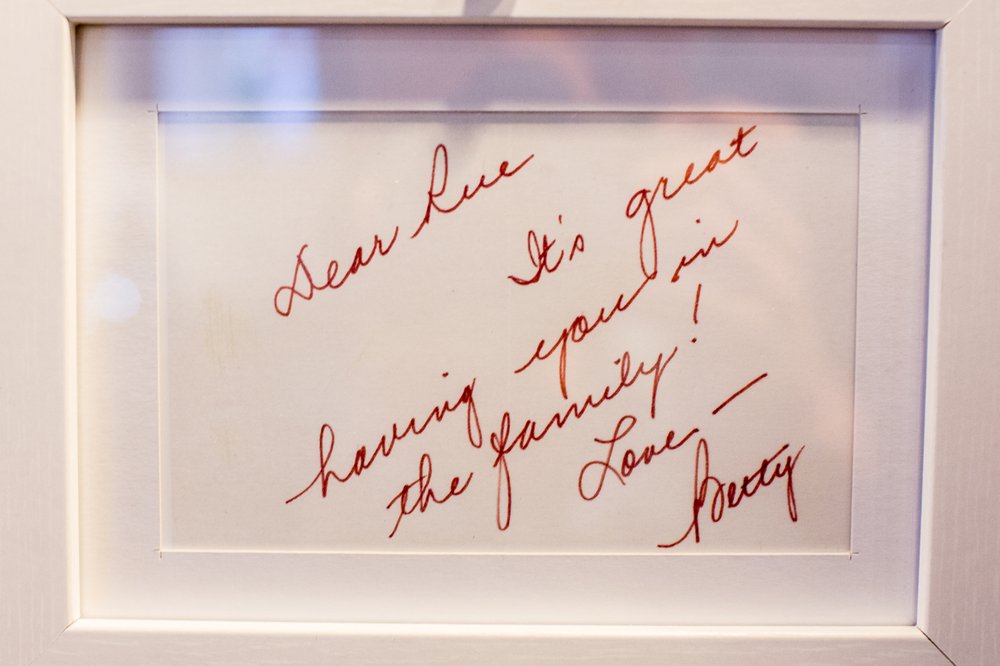 Dear Rue
It's great
having you in
the family!
Love —
Betty